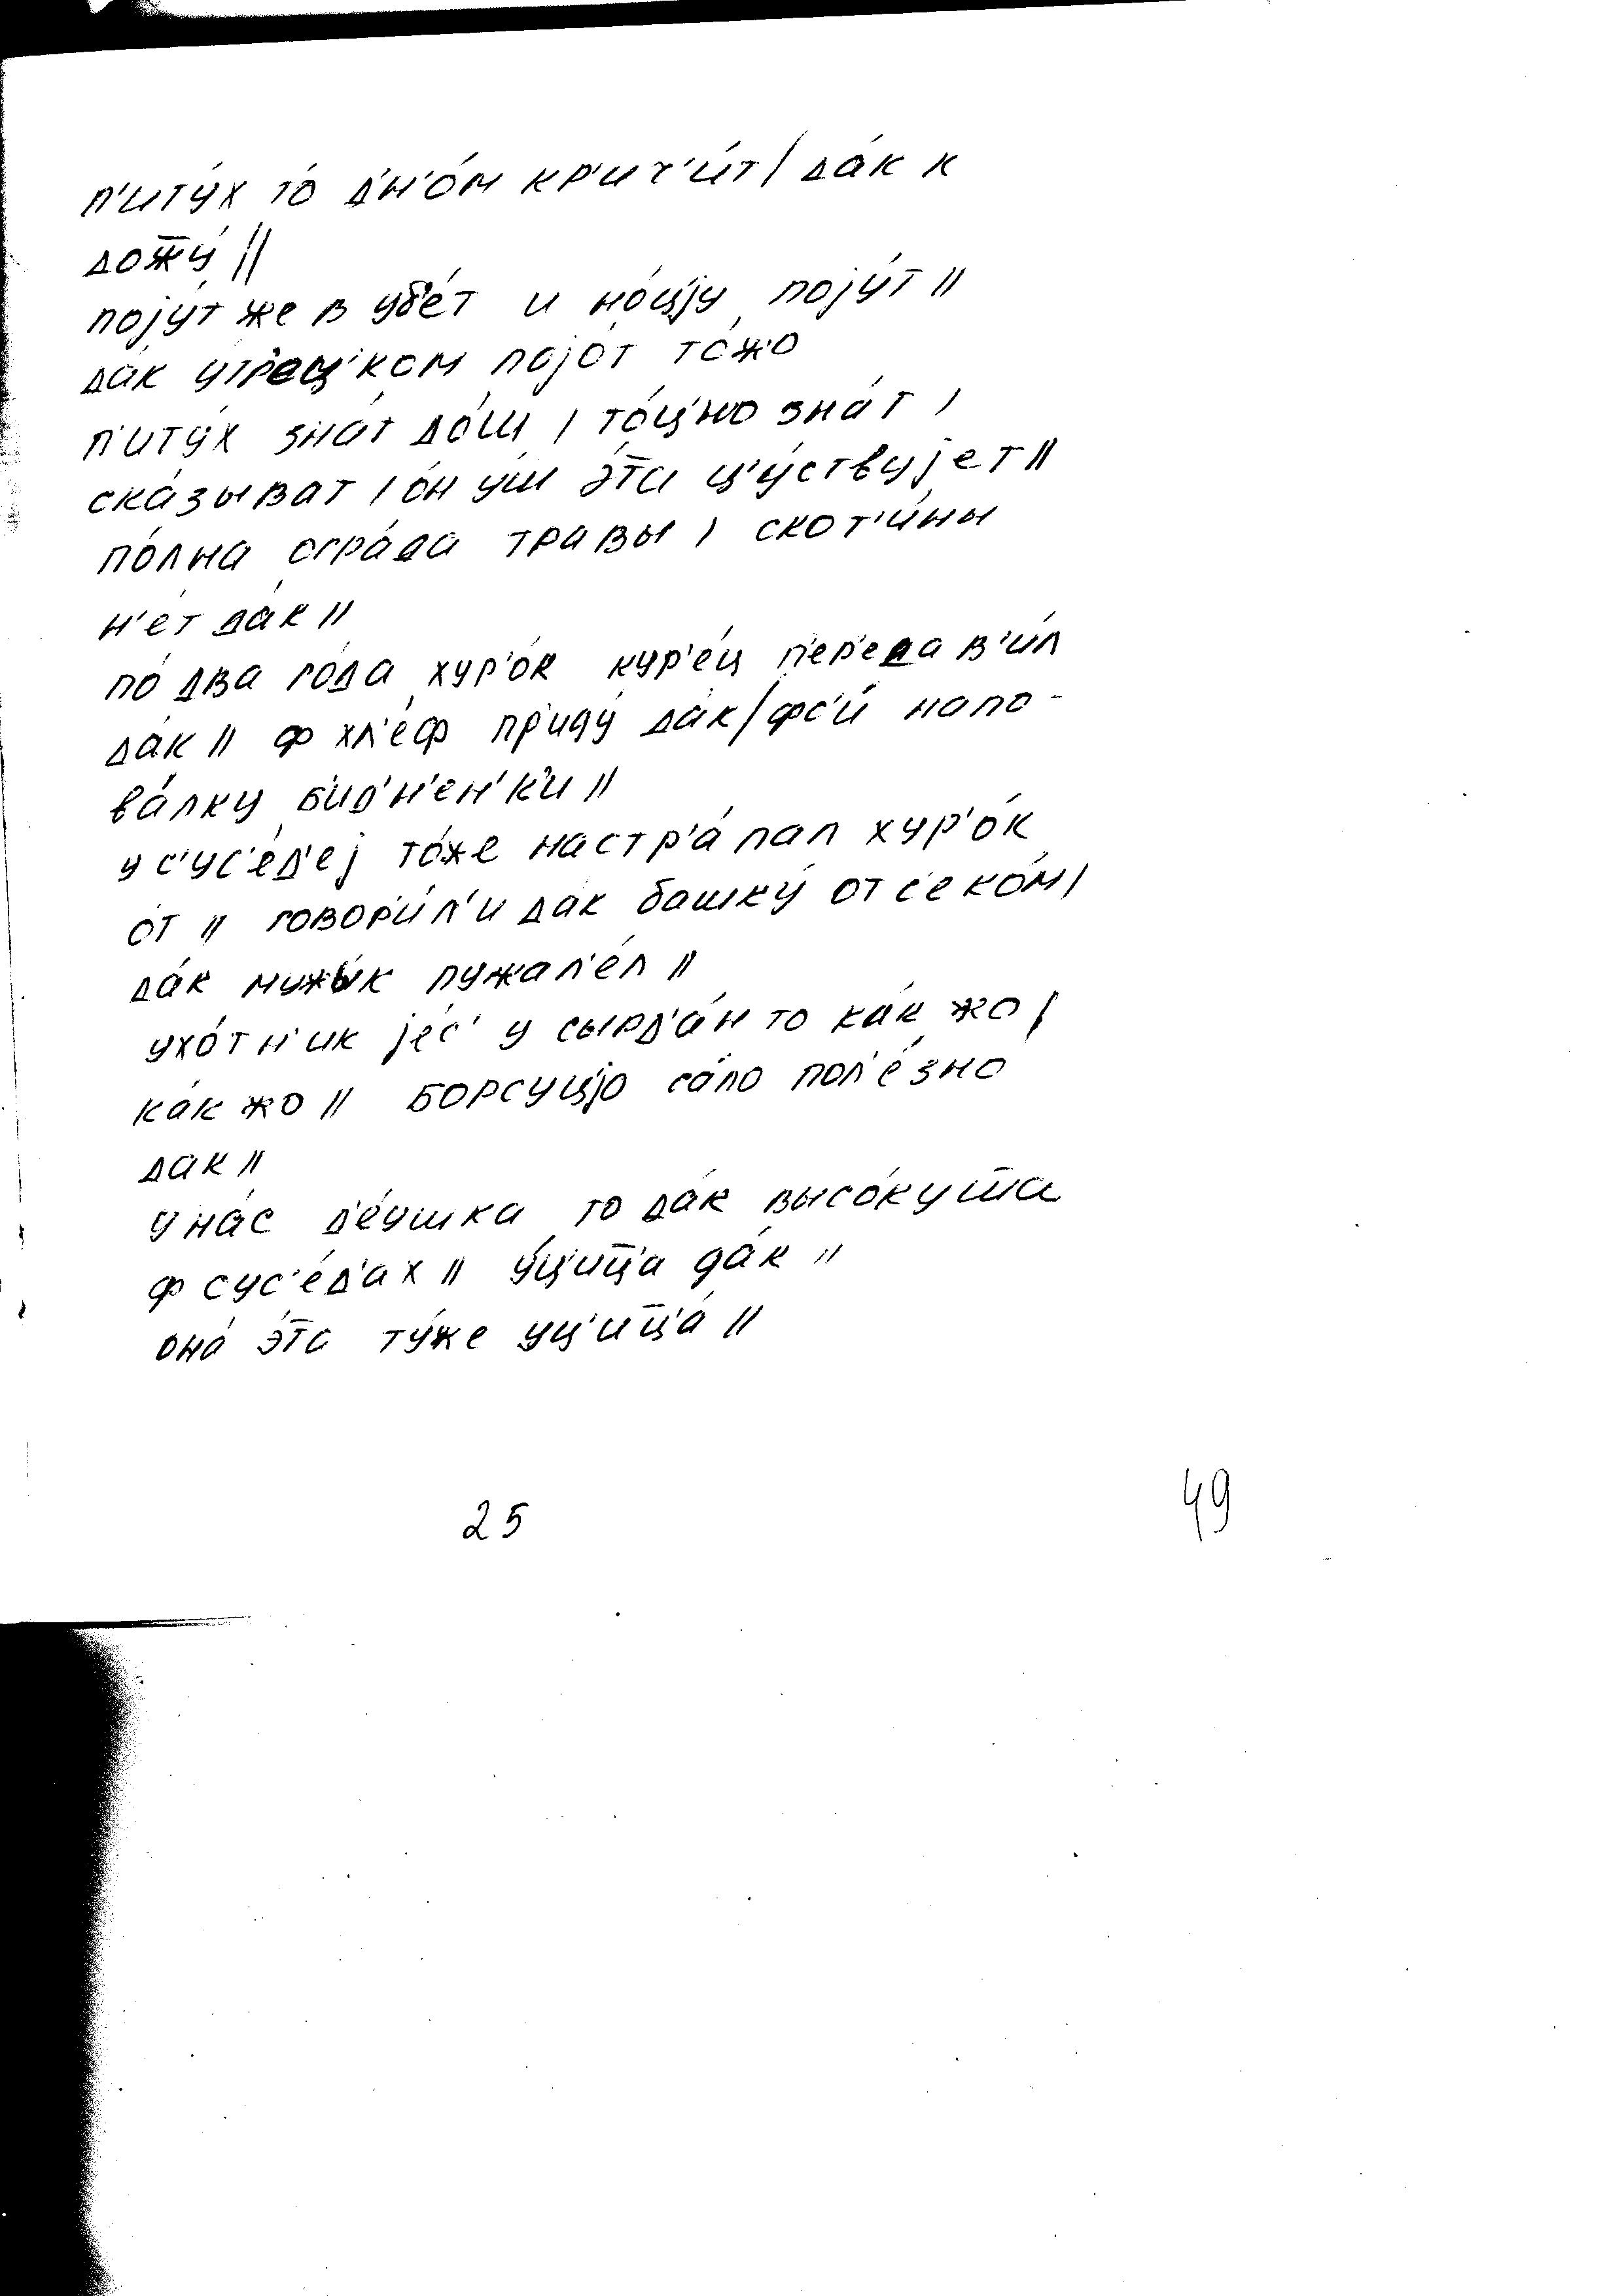 п'иту́х то́ д'н'о́м кр'ич'и́т / да́к к
дож̅у́ ||
појýт же в уб'е́т и но́ц'јy појýт ||
да́к утр'ец'ко́м појо́т то́жо
п'иту́х зна́т до́ш / то́ц'но зна́т /
ска́зыват / о́н у́ш э́та ц'у́ствујет ||
по́лна огра́да травы / скот'и́ны
н'е́т да́к ||
по́ два го́да хур'о́к кур'е́ц п'ер'едав'и́л
да́к || ф хл'е́ф пр'иду́ да́к / фс'и́ напо-
ва́лку б'ид'н'ен'к'и ||
у с'ус'е́д'еј то́же настр'а́пал хур'о́к
о́т || говор'и́л'и дак башку́ отс'еко́м /
да́к мужы́к пужал'е́л ||
ухо́тн'ик је́с' у сырд'а́н то ка́к жо /
ка́к жо || борсуц'јо са́ло пол'е́зно
дак ||
у на́с д'е́ушка то да́к высо́ку т̅а
ф сус'е́д'ах || у́ц'иц̅'а да́к ||
она́ э́та ту́же уц'иц̅'а́ ||
25
49